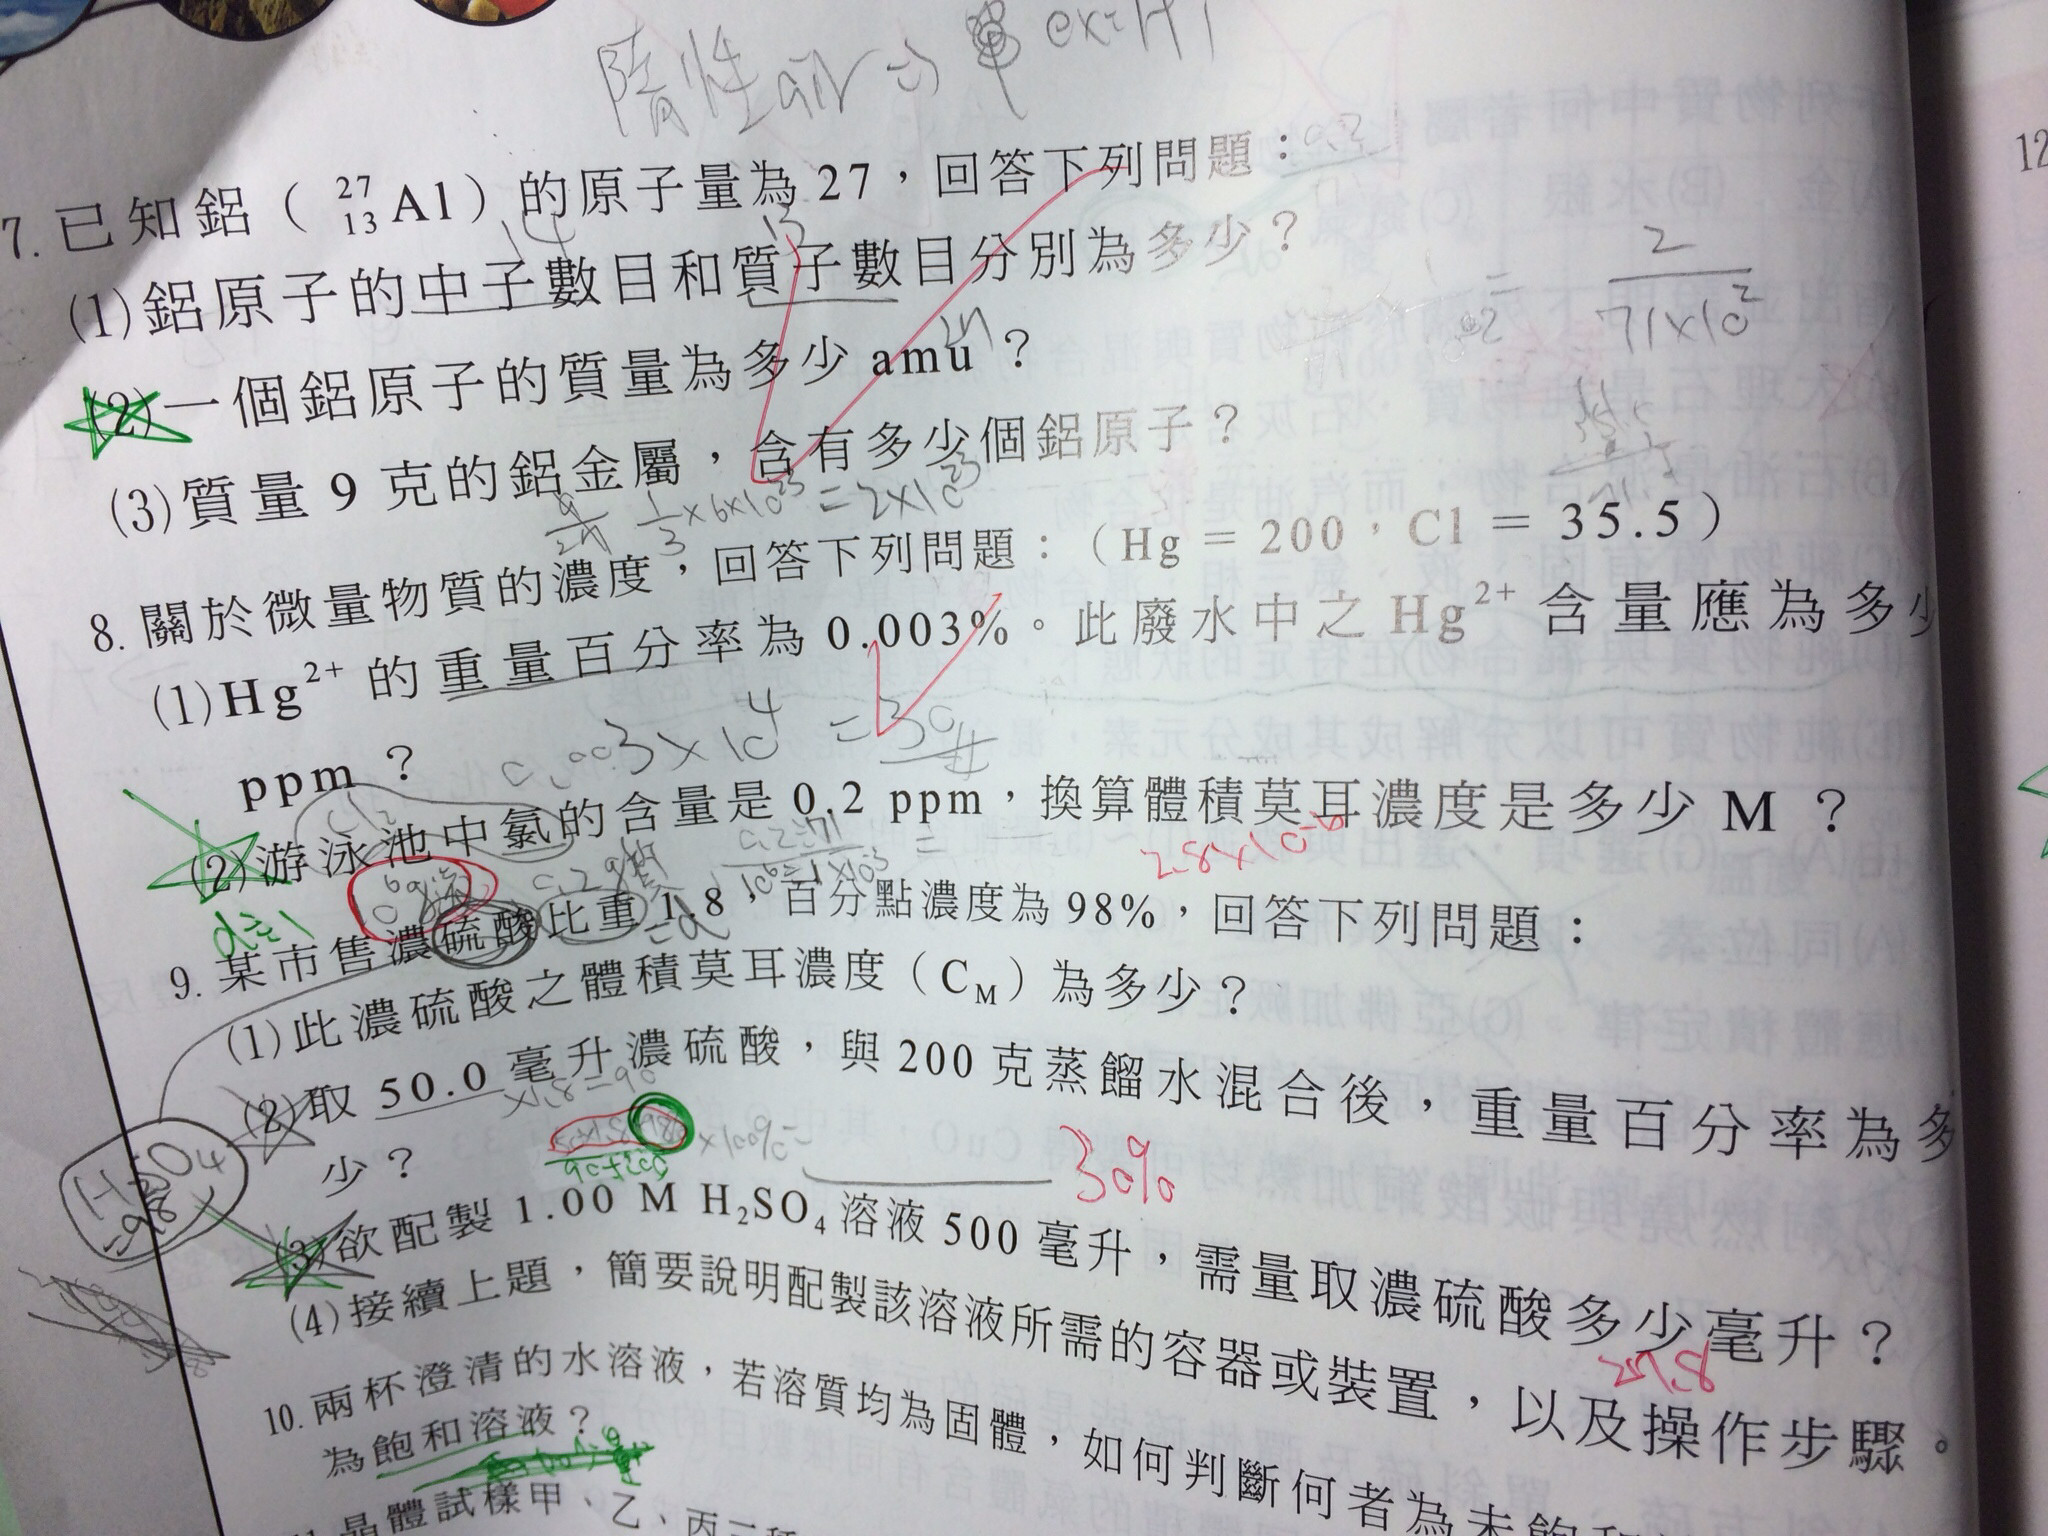 惰性air⇒單 ex:H
7. 已知鋁（ ²⁷₁₃Al）的原子量為 27，回答下列問題：
14
13
(1)鋁原子的中子數目和質子數目分別為多少？
27
(2)一個鋁原子的質量為多少 amu？
(3)質量 9 克的鋁金屬，含有多少個鋁原子？
9/27 1/3×6×10²³=2×10²³
2/71×10²
35.5
8. 關於微量物質的濃度，回答下列問題：（Hg = 200，Cl = 35.5）
(1)Hg²⁺ 的重量百分率為 0.003%。此廢水中之 Hg²⁺ 含量應為多少
ppm？
0.003×10⁴=30#
Cl₂
(2)游泳池中氯的含量是 0.2 ppm，換算體積莫耳濃度是多少 M？
0.2÷71/10⁶÷1×10⁻³ =
2.8×10⁻⁶
d≒1
9. 某市售濃硫酸比重 1.8，百分點濃度為 98%，回答下列問題：
=d
(1)此濃硫酸之體積莫耳濃度（C_M）為多少？
(2)取 50.0 毫升濃硫酸，與 200 克蒸餾水混合後，重量百分率為多
×1.8=90
少？
90+200
×100%=
30%
H₂SO₄
=98
(3)欲配製 1.00 M H₂SO₄ 溶液 500 毫升，需量取濃硫酸多少毫升？
27.8
(4)接續上題，簡要說明配製該溶液所需的容器或裝置，以及操作步驟。
10. 兩杯澄清的水溶液，若溶質均為固體，如何判斷何者為未飽和
為飽和溶液？
晶體試樣甲、乙、丙三種
12